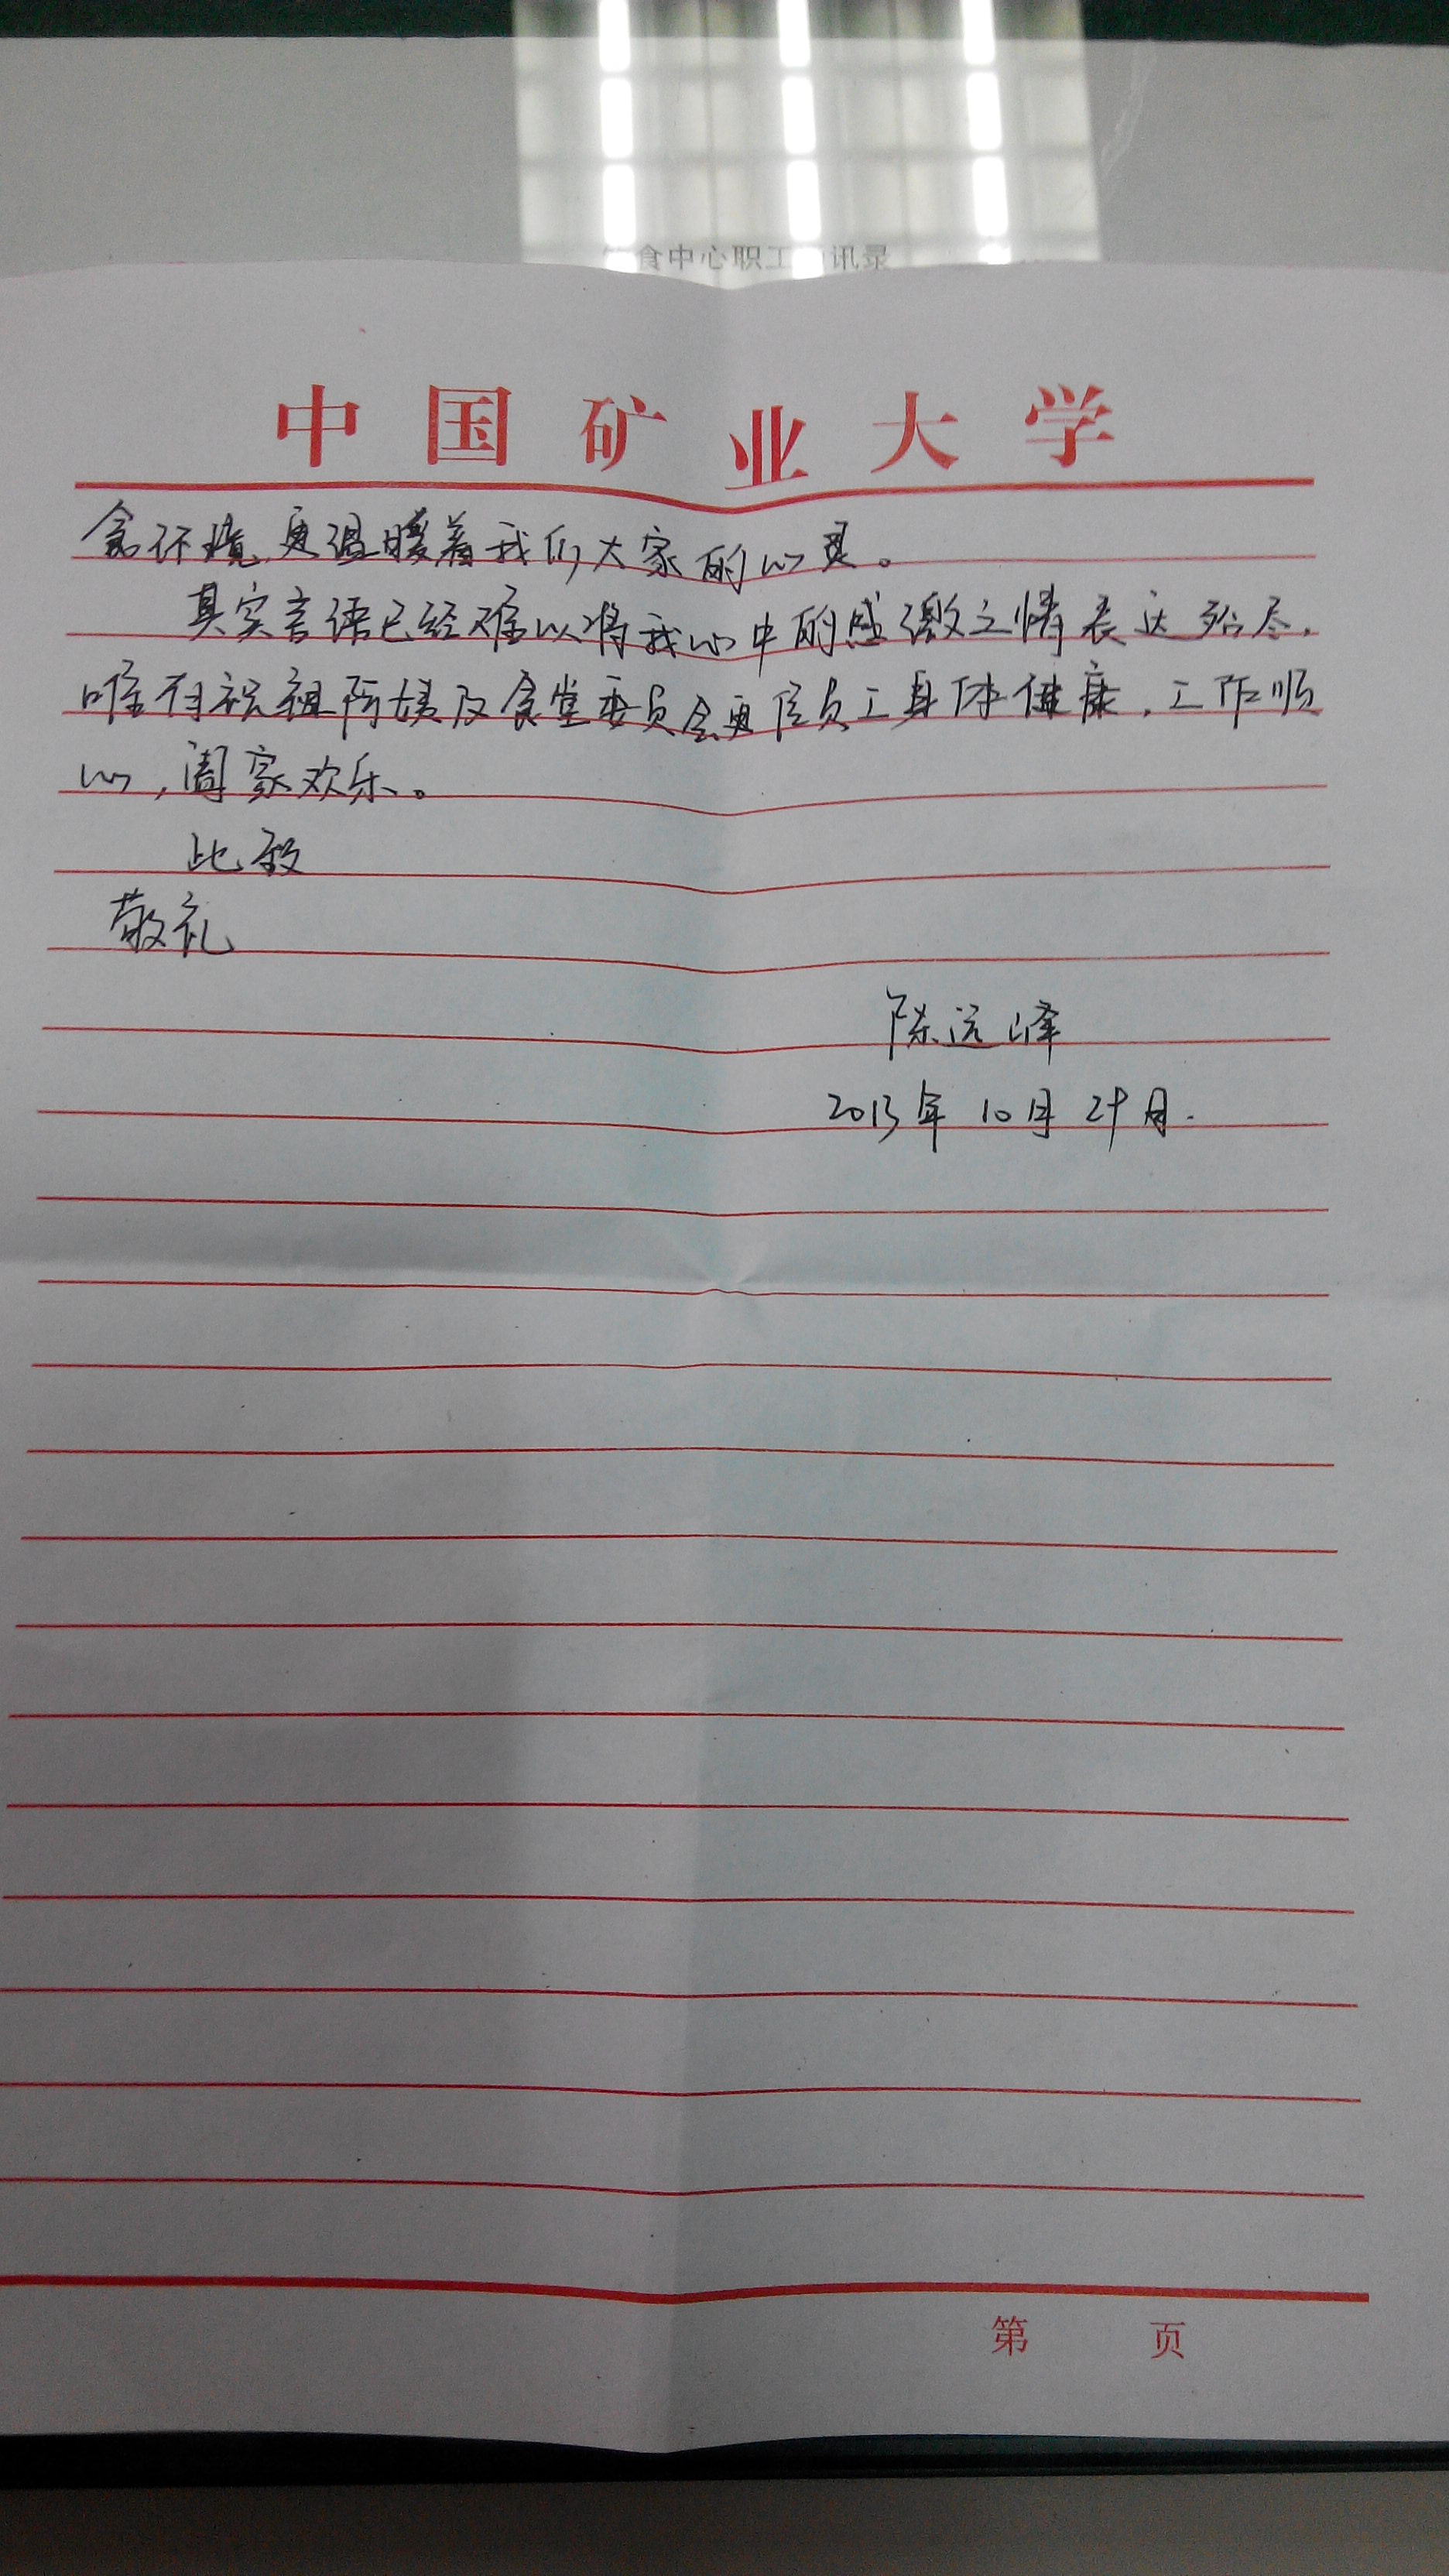 食中心职工 讯录
中国矿业大学
食环境,更温暖着我们大家的心灵。
其实言语已经难以将我心中的感激之情表达殆尽,
唯有祝祖阿姨及食堂委员会更位员工身体健康,工作顺
心,阖家欢乐。
此致
敬礼
陈远峰
2013年10月29日.
第 页